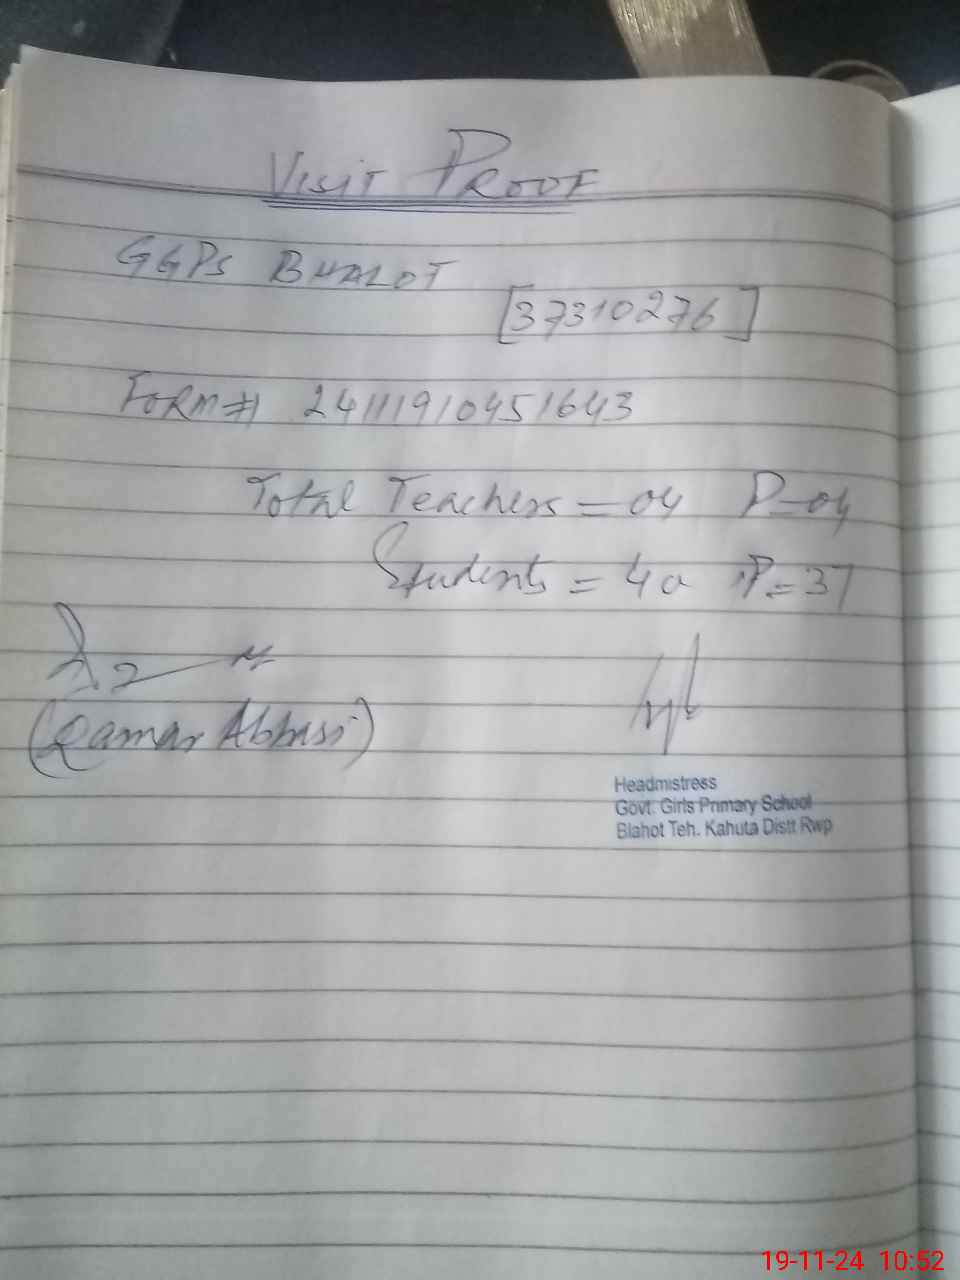 Visit Proof
GGPS BHALOT
[37310276]
Form# 24111910451643
Total Teachers = 04 P=04
Students = 40 P=37
(Qamar Abbasi)
Headmistress
Govt. Girls Primary School
Blahot Teh. Kahuta Distt Rwp
19-11-24 10:52